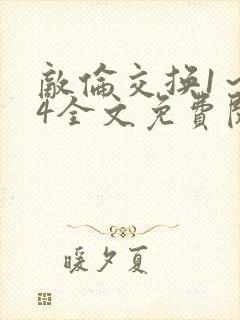 敵倫交换1一
4全文免費閱
暖夕夏